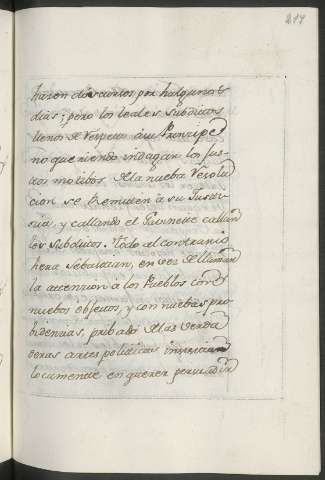 217
haran discursos por halgunos
dias; pero los leales Subditos
llenos de respecto a su Principe
no queriendo indagar los jus-
tos motibos de la nueba resolu
cion se remiten à su Juste-
sia, y callando el Principe callan
los Subditos. Todo al contrario
hera Sebalaian, en vez de llamar
la attension a los Pueblos con
nuebos obsetos, y con nuebas pro
bidencias, pribado de las verda
deras artes politicas insistian
locamente en querer persuadir